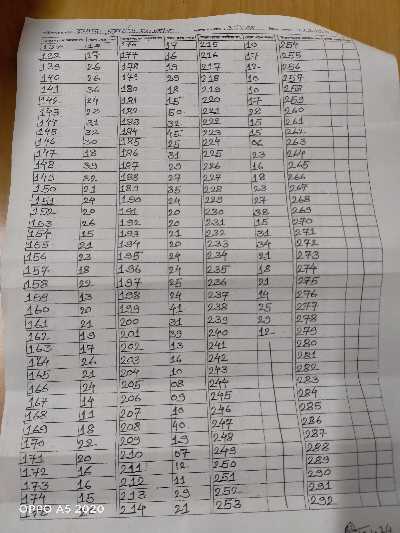 138 27 177 16 216 17 255
139 26 178 19 217 12 256
140 26 179 29 218 10 257
141 36 180 18 219 10 258
142 24 181 15 220 17 259
143 23 182 50 221 28 260
144 31 183 32 222 15 261
145 32 184 45 223 15 262
146 30 185 25 224 06 263
147 18 186 31 225 23 264
148 39 187 29 226 16 265
149 32 188 27 227 18 266
150 21 189 35 228 23 267
151 24 190 24 229 27 268
152 20 191 20 230 38 269
153 26 192 20 231 15 270
154 15 193 21 232 31 271
155 21 194 20 233 34 272
156 23 195 24 234 21 273
157 18 196 24 235 18 274
158 22 197 25 236 21 275
159 13 198 24 237 14 276
160 20 199 41 238 25 277
161 21 200 31 239 29 278
162 19 201 39 240 12 279
163 17 202 13 241 280
164 26 203 16 242 281
165 21 204 10 243 282
166 24 205 08 244 283
167 14 206 09 245 284
168 11 207 10 246 285
169 18 208 40 247 286
170 22 209 19 248 287
171 20 210 07 249 288
172 16 211 12 250 289
173 16 212 11 251 290
174 15 213 29 252 291
214 21 253 292
OPPO A5 2020